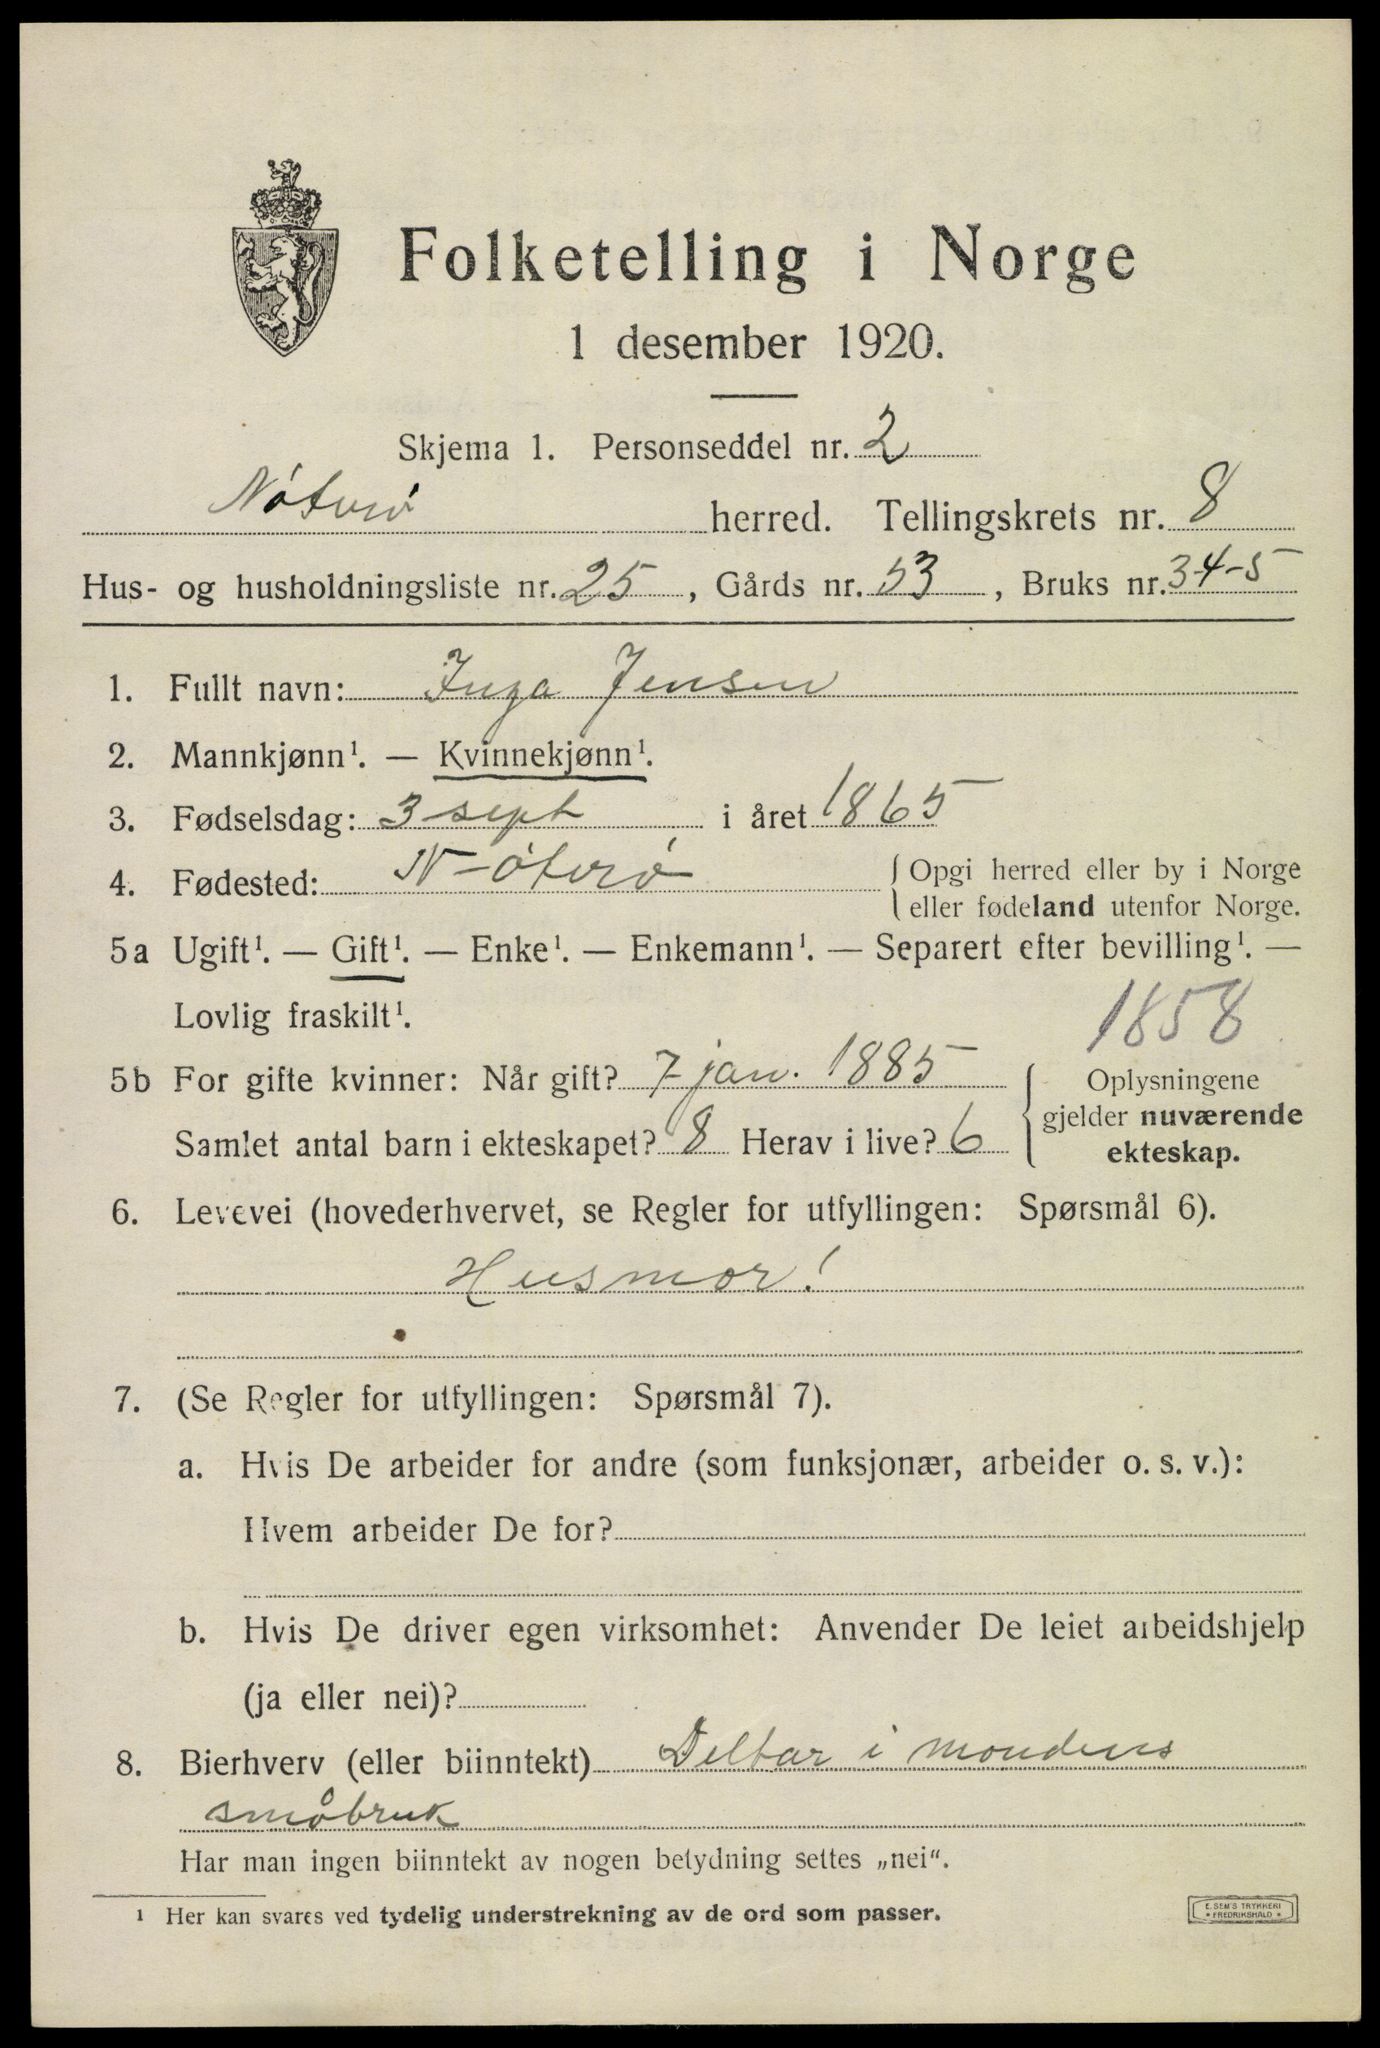 Folketelling i Norge
1 desember 1920.
Skjema 1. Personseddel nr. 2
Nøterø herred. Tellingskrets nr. 8
Hus- og husholdningsliste nr. 25, Gårds nr. 53, Bruks nr. 34-5
1. Fullt navn: Inga Jensen
2. Mannkjønn¹. — Kvinnekjønn¹.
3. Fødselsdag: 3 sept i året 1865
4. Fødested: Nøterø { Opgi herred eller by i Norge
eller fødeland utenfor Norge.
5a Ugift¹. — Gift¹. — Enke¹. — Enkemann¹. — Separert efter bevilling¹. —
Lovlig fraskilt¹. 1858
5b For gifte kvinner: Når gift? 7 jan. 1885 { Oplysningene
gjelder nuværende
Samlet antal barn i ekteskapet? 8 Herav i live? 6 ekteskap.
6. Levevei (hovederhvervet, se Regler for utfyllingen: Spørsmål 6).
Husmor!
7. (Se Regler for utfyllingen: Spørsmål 7).
a. Hvis De arbeider for andre (som funksjonær, arbeider o. s. v.):
Hvem arbeider De for?
b. Hvis De driver egen virksomhet: Anvender De leiet arbeidshjelp
(ja eller nei)?
8. Bierhverv (eller biinntekt) Deltar i mandens
småbruk
Har man ingen biinntekt av nogen betydning settes „nei".
¹ Her kan svares ved tydelig understrekning av de ord som passer.
E. SEM'S TRYKKERI
* FREDRIKSHALD *